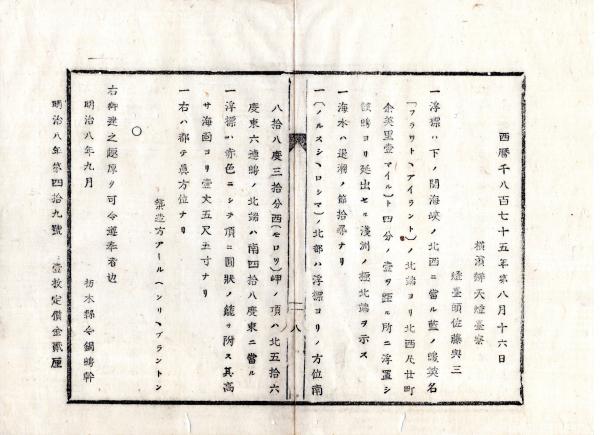 西暦千八百七十五年第八月十六日
横濱辨天燈臺寮
燈臺頭佐藤與三
一浮標ハ下ノ関海峡ノ北西ニ當ル藍ノ嶋英名
「フラワトヘアイラント」ノ北端ヨリ北西凡廿町
余英里壹マイルト四分ノ壹ヲ距ル所ニ浮置シ
該嶋ヨリ延出セル淺洲ノ極北端ヲ示ス
一海水ハ退潮ノ節拾尋ナリ
一「ノルスシヘロシマ」ノ北部ハ浮標ヨリノ方位南
八拾八度三拾分西「モロリ」岬ノ頂ハ北五拾六
度東六連嶋ノ北端ハ南四拾八度東ニ當ル
一浮標ハ赤色ニシテ頂ニ圓状ノ籠ヲ附ス其高
サ海面ヨリ壹丈五尺五寸ナリ
一右ハ都テ眞方位ナリ
築造方アールヘンリヘブラントン
○
右御達之趣厚ク可令遵奉者也
明治八年九月
栃木縣令鍋嶋幹
明治八年第四拾九號 壹枚定價金貳厘
二八